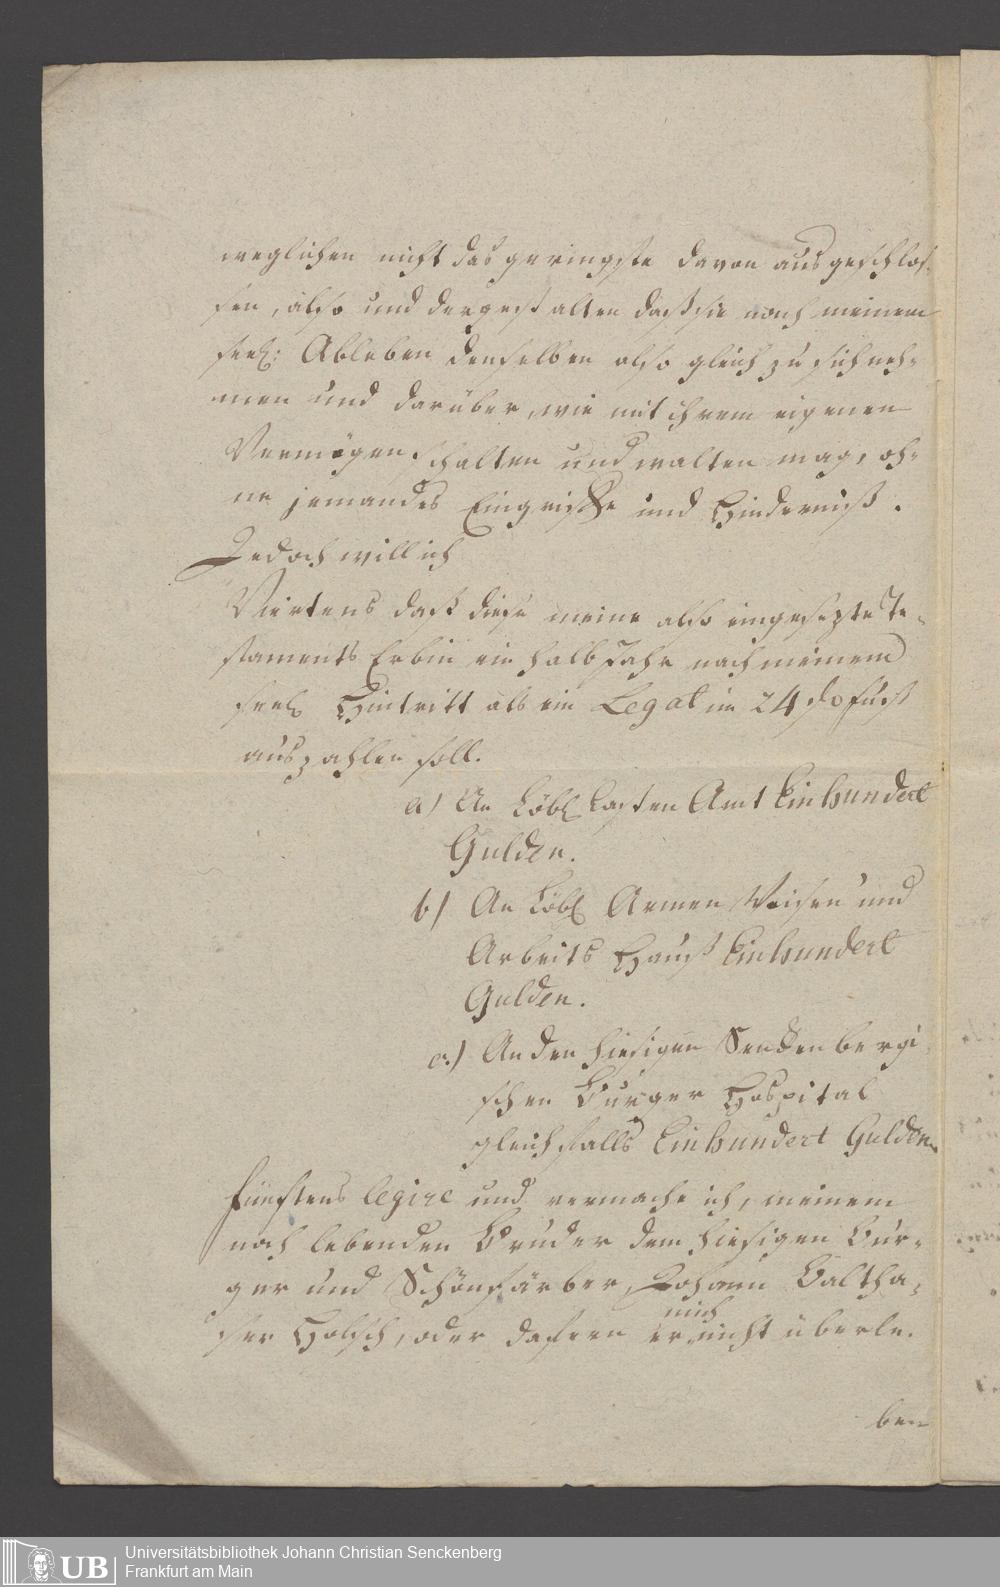 weglichen nicht das geringste davon ausgeschlos-
sen, also und dergestalten daß sie nach meinem
seel: Ableben denselben also gleich zu sich neh-
men und darüber, wie mit ihrem eigenen
Vermögen schalten und walten mag, oh-
ne jemandes Eingriffe und Hinderniß.
Jedoch will ich
Viertens daß diese meine also eingesezte Te-
staments Erbin ein halb Jahr nach meinem
seel Hintritt als ein Legat im 24 fl fuß
auszahlen soll.
a) An Löbl Casten Amt Einhundert
Gulden.
b) An Löbl Armen Waisen und
Arbeits Hauß Einhundert
Gulden.
c.) An den hiesigen Senckenbergi
schen Burger Hospital
gleichfalls Einhundert Gulden
fünftens legire und vermache ich, meinem
noch lebenden Bruder dem hiesigen Bur-
ger und Schönfärber, Johann Baltha-
ser Holsch, oder dafern er mich nicht überle-
ben
UB Universitätsbibliothek Johann Christian Senckenberg
Frankfurt am Main